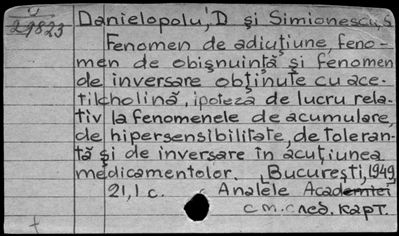 II
29823
Danielopolu, D şi Simionescu, S
Fenomen de adiuţiune, feno-
men de obişnuinţă şi fenomen
de inversare obţinute cu ace-
tilcholină, ipoteza de lucru rela-
tiv la fenomenele de acumulare,
de hipersensibilitate, de toleran-
tă şi de inversare în acuţiunea
medicamentelor. Bucureşti, 1949,
21,1 c. Analele Academiei
см. след. карт.